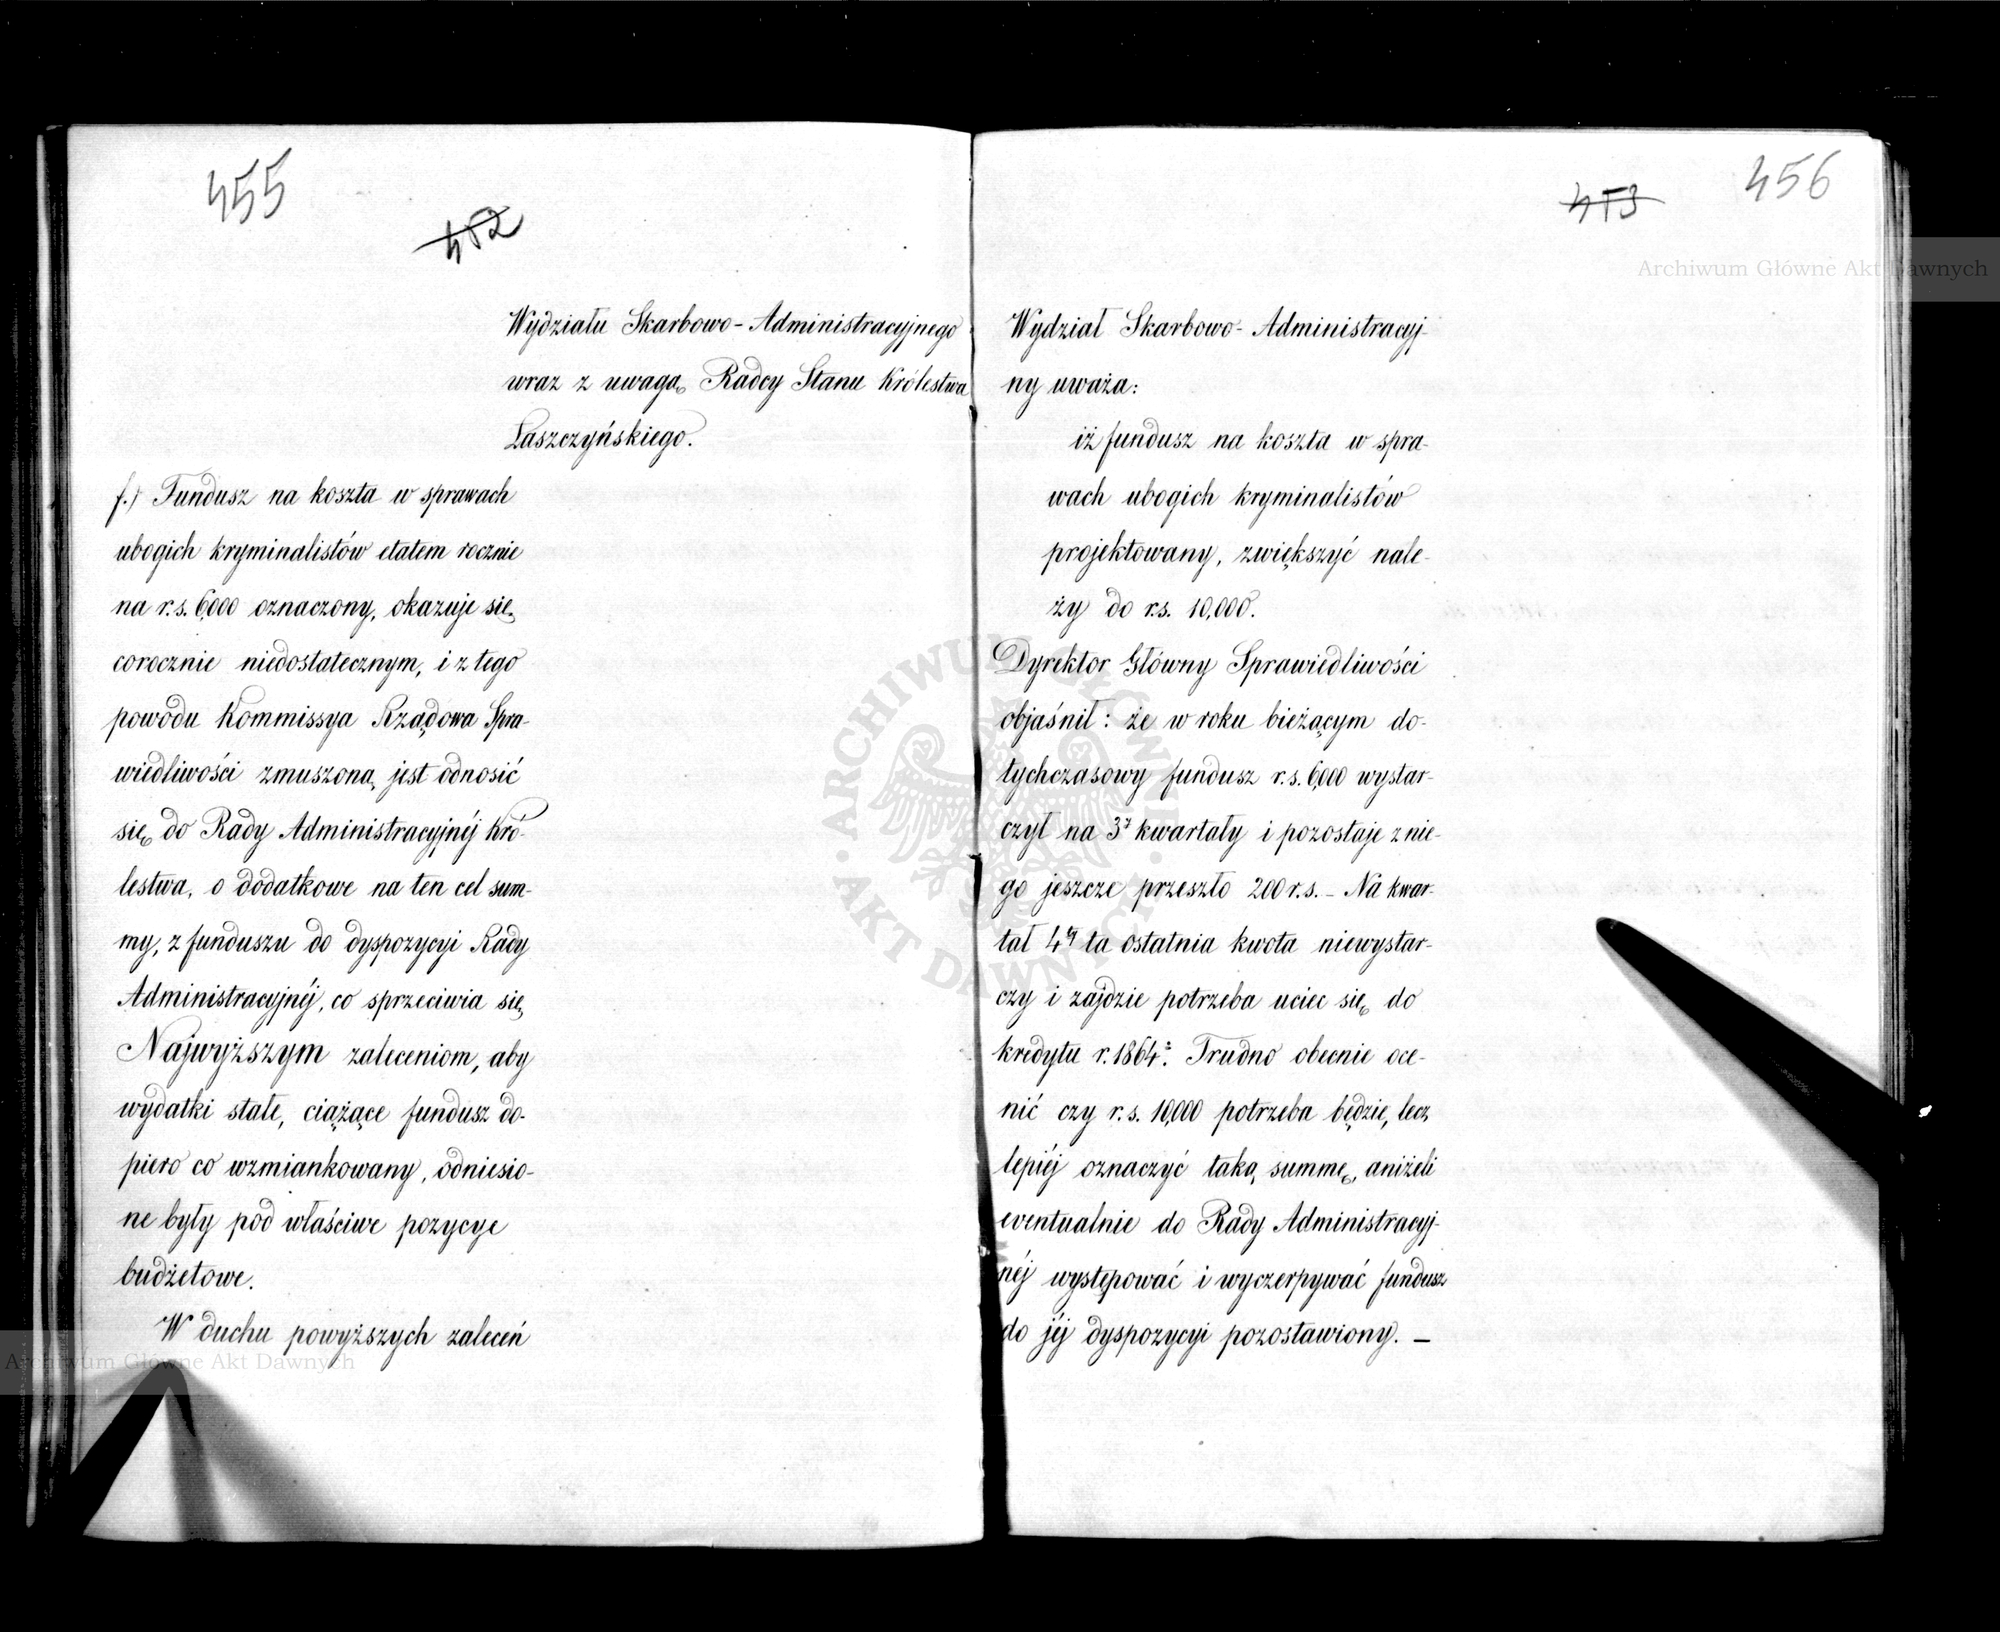 455
452
Wydziału Skarbowo-Administracyjnego
wraz z uwagą Radcy Stanu Królestwa
Łaszczyńskiego.
f.) Fundusz na koszta w sprawach
ubogich kryminalistów etatem rocznie
na r.s. 6,000 oznaczony, okazuje się
corocznie niedostatecznym, i z tego
powodu Kommissya Rządowa Spra-
wiedliwości zmuszoną jest odnosić
się do Rady Administracyjnéj Kró-
lestwa, o dodatkowe na ten cel sum-
my, z funduszu do dyspozycyi Rady
Administracyjnéj, co sprzeciwia się
Najwyższym zaleceniom, aby
wydatki stałe, ciążące fundusz do-
piero co wzmiankowany, odniesio-
ne były pod właściwe pozycye
budżetowe.
W duchu powyższych zaleceń
456
453
Wydział Skarbowo-Administracyj-
ny uważa:
iż fundusz na koszta w spra-
wach ubogich kryminalistów
projektowany, zwiększyć nale-
ży do r.s. 10,000.
Dyrektor Główny Sprawiedliwości
objaśnił: że w roku bieżącym do-
tychczasowy fundusz r.s. 6,000 wystar-
czył na 3y kwartały i pozostaje z nie-
go jeszcze przeszło 200 r.s. – Na kwar-
tał 4y ta ostatnia kwota niewystar-
czy i zajdzie potrzeba uciec się do
kredytu r. 1864. Trudno obecnie oce-
nić czy r.s. 10,000 potrzeba będzie, lecz
lepiéj oznaczyć taką summę, aniżeli
eventualnie do Rady Administracyj-
néj występować i wyczerpywać fundusz
do jéj dyspozycyi pozostawiony. –
Archiwum Główne Akt Dawnych
Archiwum Główne Akt Dawnych
ARCHIWUM GŁÓWNE
AKT DAWNYCH